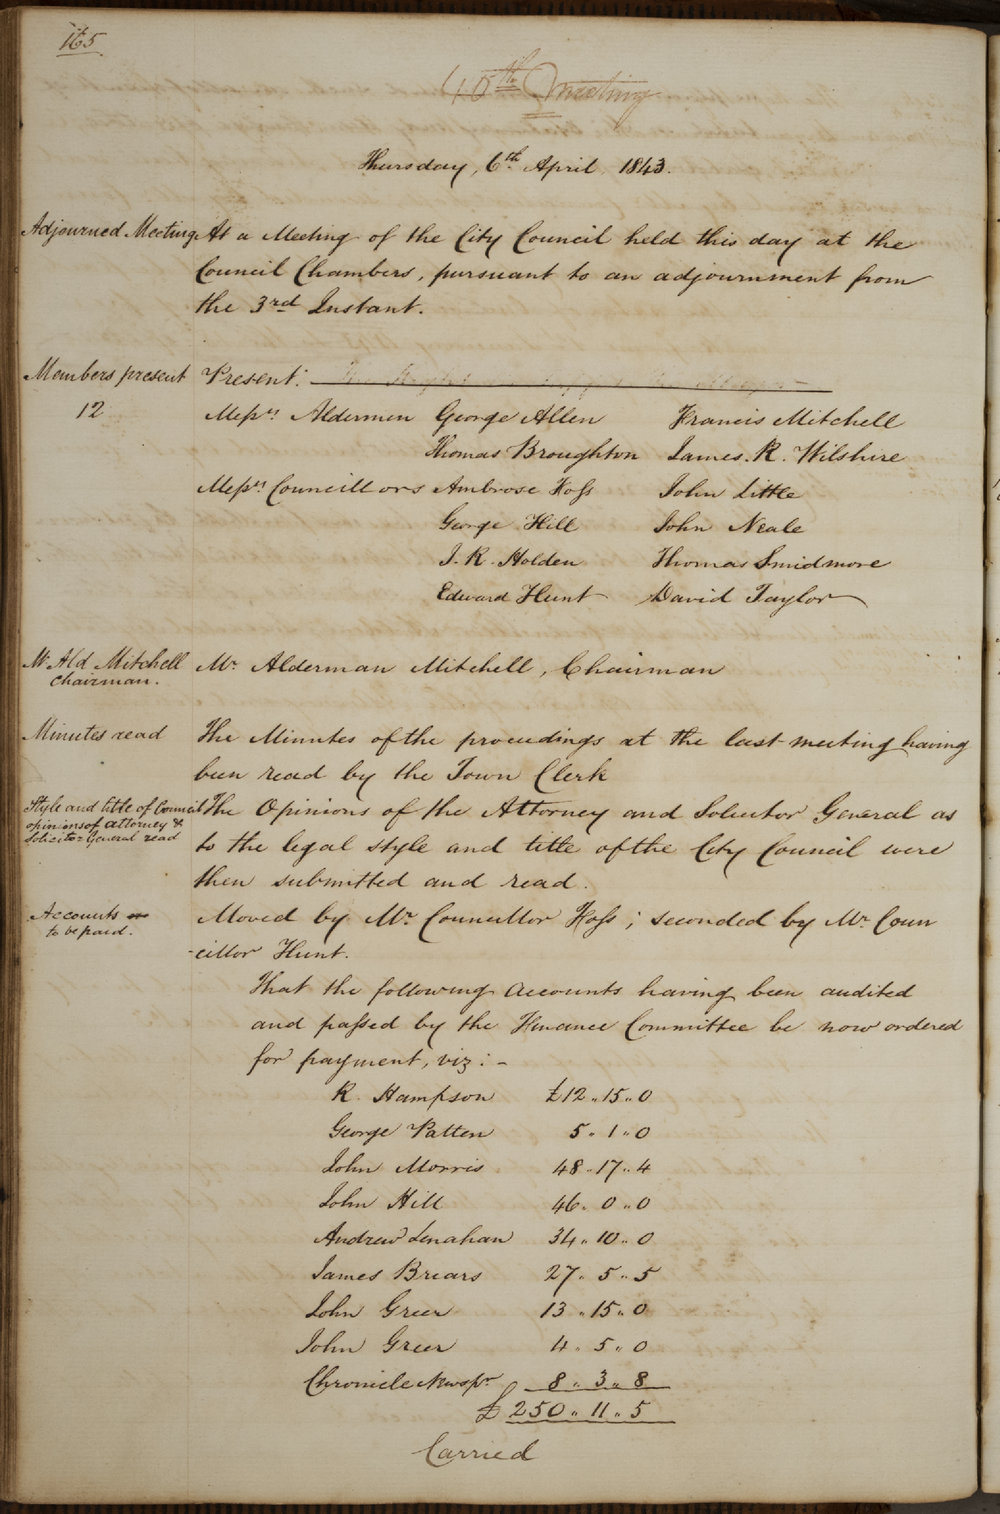 165
40th Meeting
Thursday, 6th April, 1843.
Adjourned Meeting At a Meeting of the City Council held this day at the
Council Chambers, pursuant to an adjournment from
the 3rd Instant.
Members present Present:
12 Messrs Aldermen George Allen Francis Mitchell
Thomas Broughton James. R. Wilshire
Messrs Councillors Ambrose Foss John Little
George Hill John Neale
J. R. Holden Thomas Smidmore
Edward Hunt David Taylor
Mr Ald Mitchell Mr. Alderman Mitchell, Chairman
Chairman.
Minutes read The Minutes of the proceedings at the last meeting having
been read by the Town Clerk
Style and title of Council The Opinions of the Attorney and Solicitor General as
opinions of attorney &
Solicitor General read to the legal style and title of the City Council were
then submitted and read.
Accounts Moved by Mr. Councillor Foss; seconded by Mr. Coun
to be paid. -cillor Hunt.
That the following Accounts having been audited
and passed by the Finance Committee be now ordered
for payment, viz: -
R. Hampson £12..15..0
George Patten 5..1..0
John Morris 48..17..4
John Hill 46..0..0
Andrew Lenahan 34..10..0
James Briars 27..5..5
John Greer 13..15..0
John Greer 4..5..0
Chronicle Newspr 8..3..8
£250..11..5
Carried